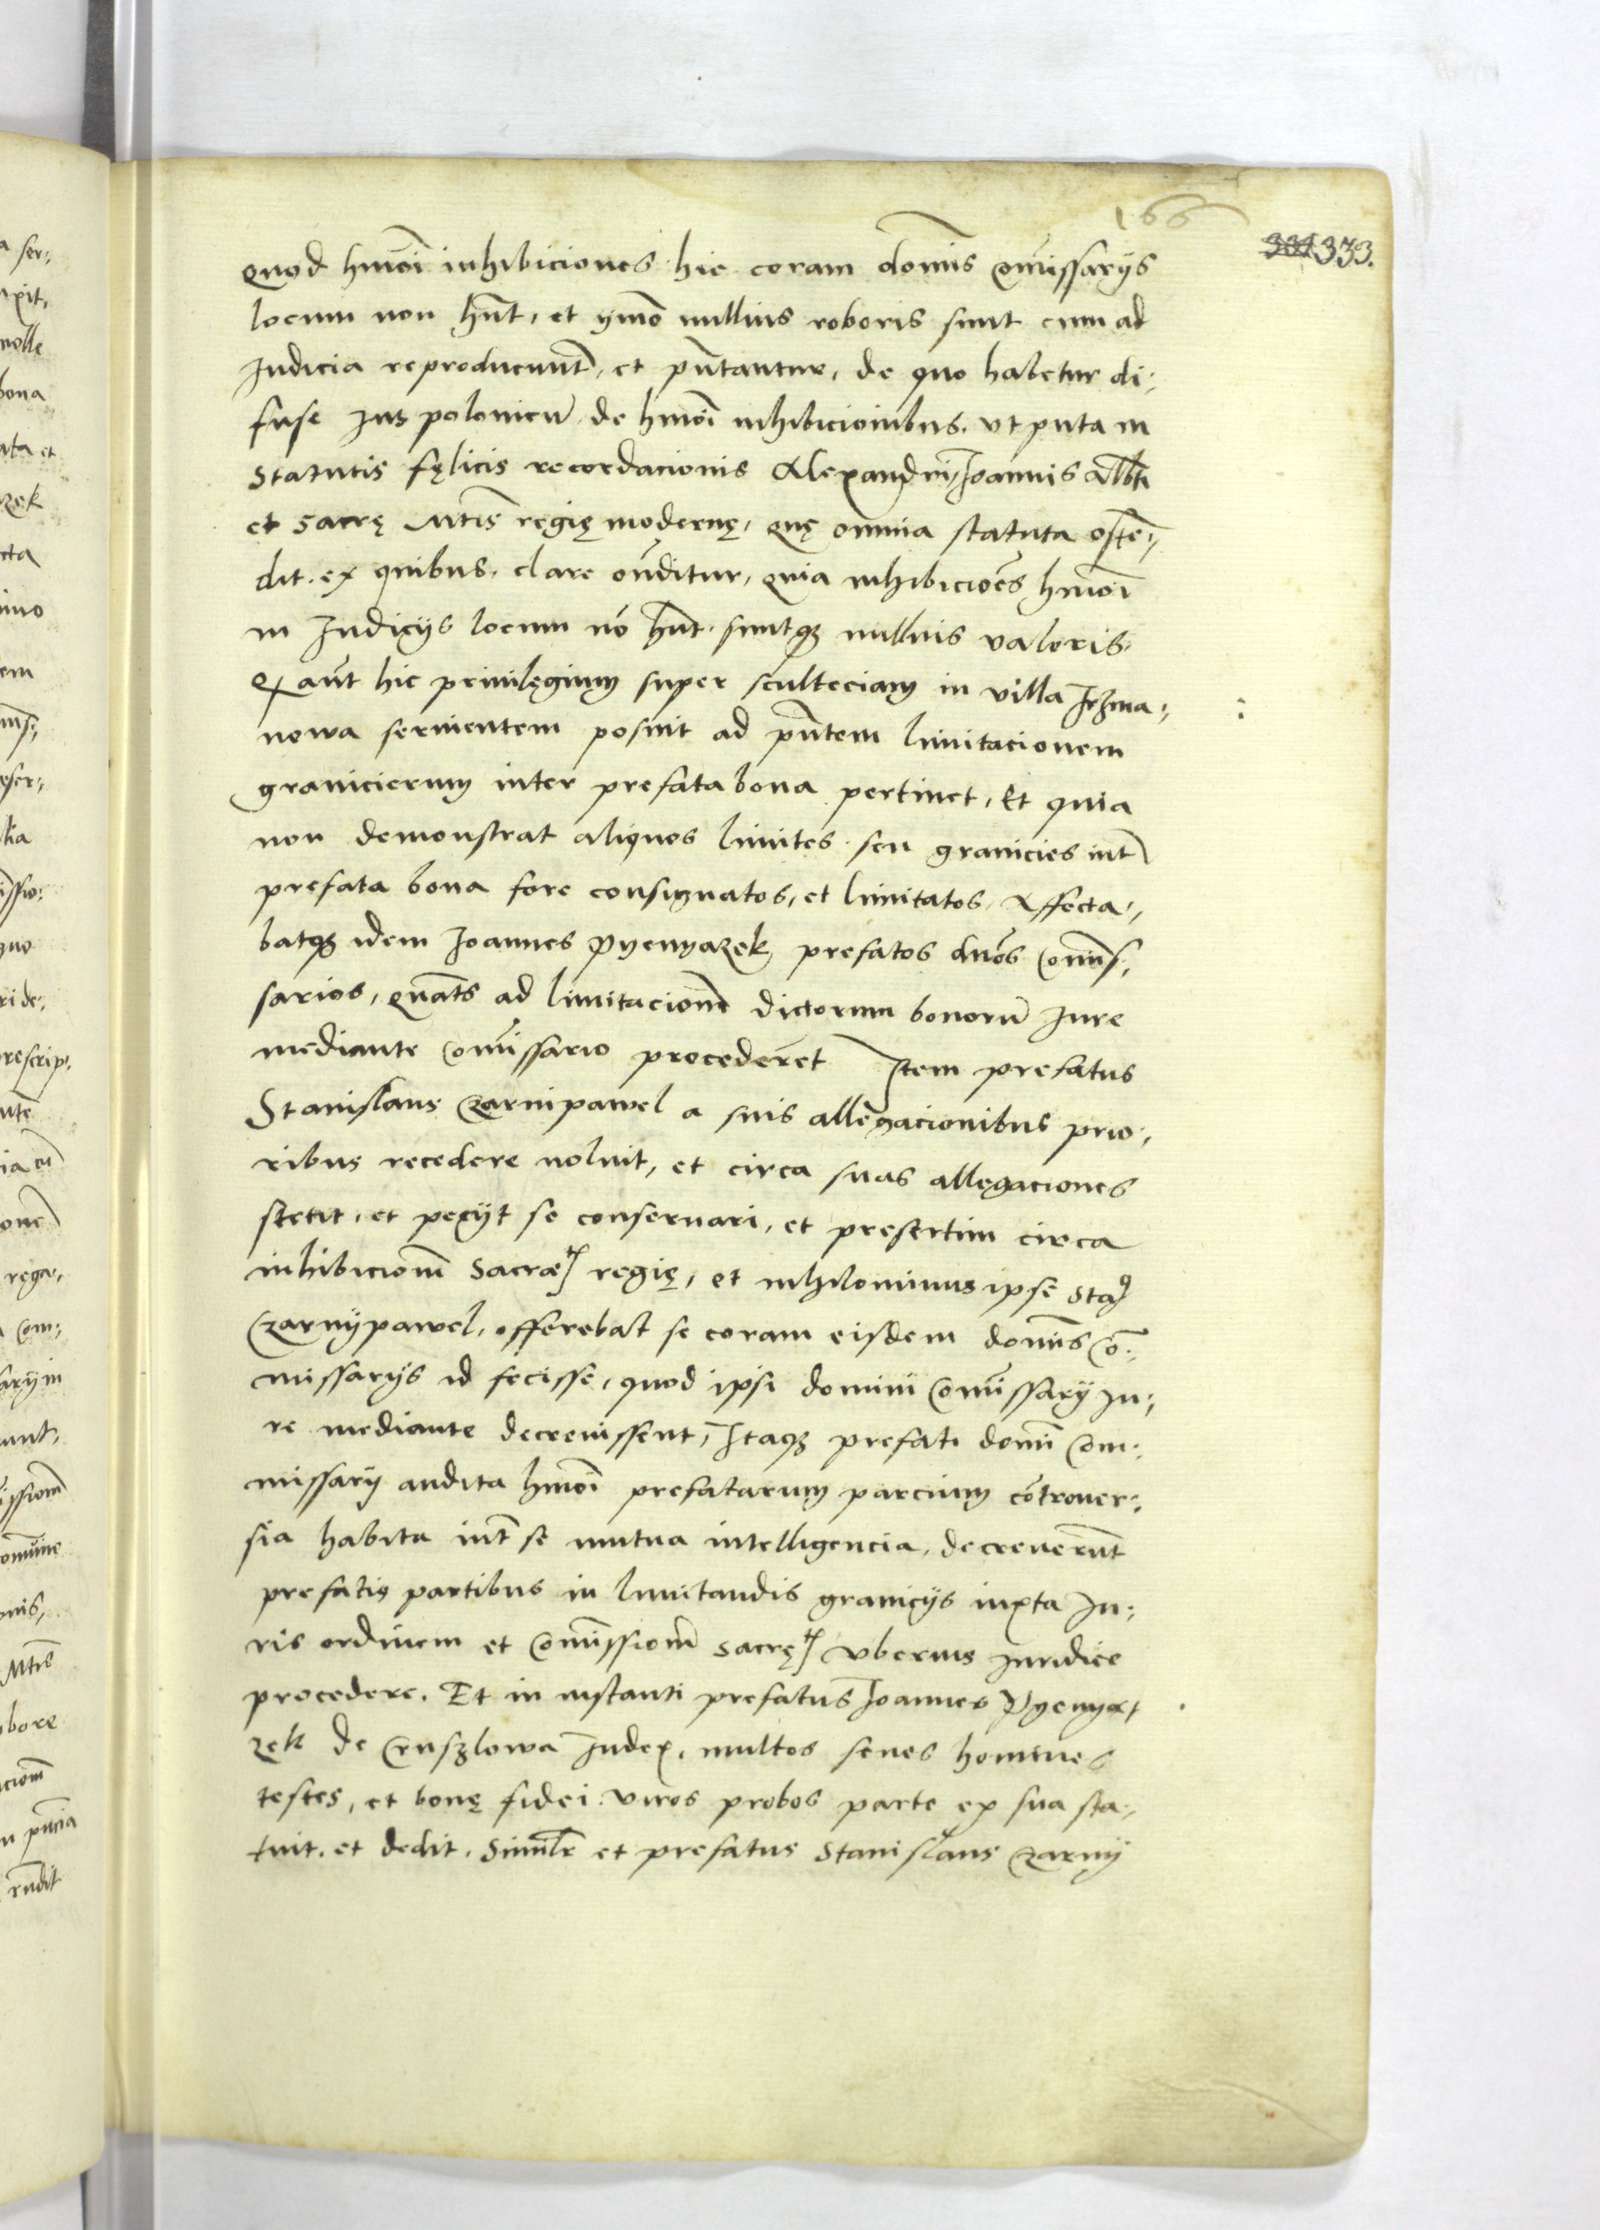 166
331 373.
quod hmōi inhibiciones hic coram domīs Comīssarijs
locum non hñt, et ymo nullius roboris sunt cum ad
Judicia reproducuntr, et pñtantur, de quo habetur di:
fuse Jus polonicū de hmōi inhibicionibus. vt puta in
Statutis fęlicis recordacionis Alexandri, Joannis Albti
et Sacrę Mtis regię modernę, quę omnia statuta ostē:
dit. ex quibus. clare oñditur, quia inhibicioēs hmōi
in Judicijs locum nō hñt. suntqȝ nullius valoris.
Q aūt hic priuilęgium super sculteciam in villa Jrzma:
nowa seruientem posuit ad pñtem limitacionem
granicierum inter prefata bona pertinet, Et quia
non demonstrat aliquos limites seu granicies intr
prefata bona fore consignatos, et limitatos. Affecta:
batqȝ idem Joannes Pyenyazek prefatos dnōs Comis:
sarios, quāts ad limitacionē dictorum bonorū Jure
mediante Comīssario procederēt Jtem prefatus
Stanislaus Czarnipawel a suis allegacionibus prio:
ribus recedere noluit, et circa suas allęgaciones
stetit, et pecijt se conseruari, et presertim circa
inhibicionē Sacræ regię, et nihilominus ipse Sta
Czarnypawel, offerebat se coram eisdem domīs Cō:
missarijs id fecisse, quod ipsi domini Comīssarij Ju:
re mediante decreuissent, Jtaqȝ prefati domī Com:
missarij audita hmōi prefatarum parcium cōtrouer:
sia habita intr se mutua intelligencia, decreuerūt
prefatis partibus in limitandis granicijs iuxta Ju:
ris ordinem et Comīssionē Sacrę vberius Juridice
procedere. Et in instanti prefatus Joannes Pyenyą
zek de Cruszlowa Judex, multos senes homines
testes, et bonę fidei viros probos parte ex sua sta:
tuit. et dedit. Similr et prefatus Stanislaus Czarny